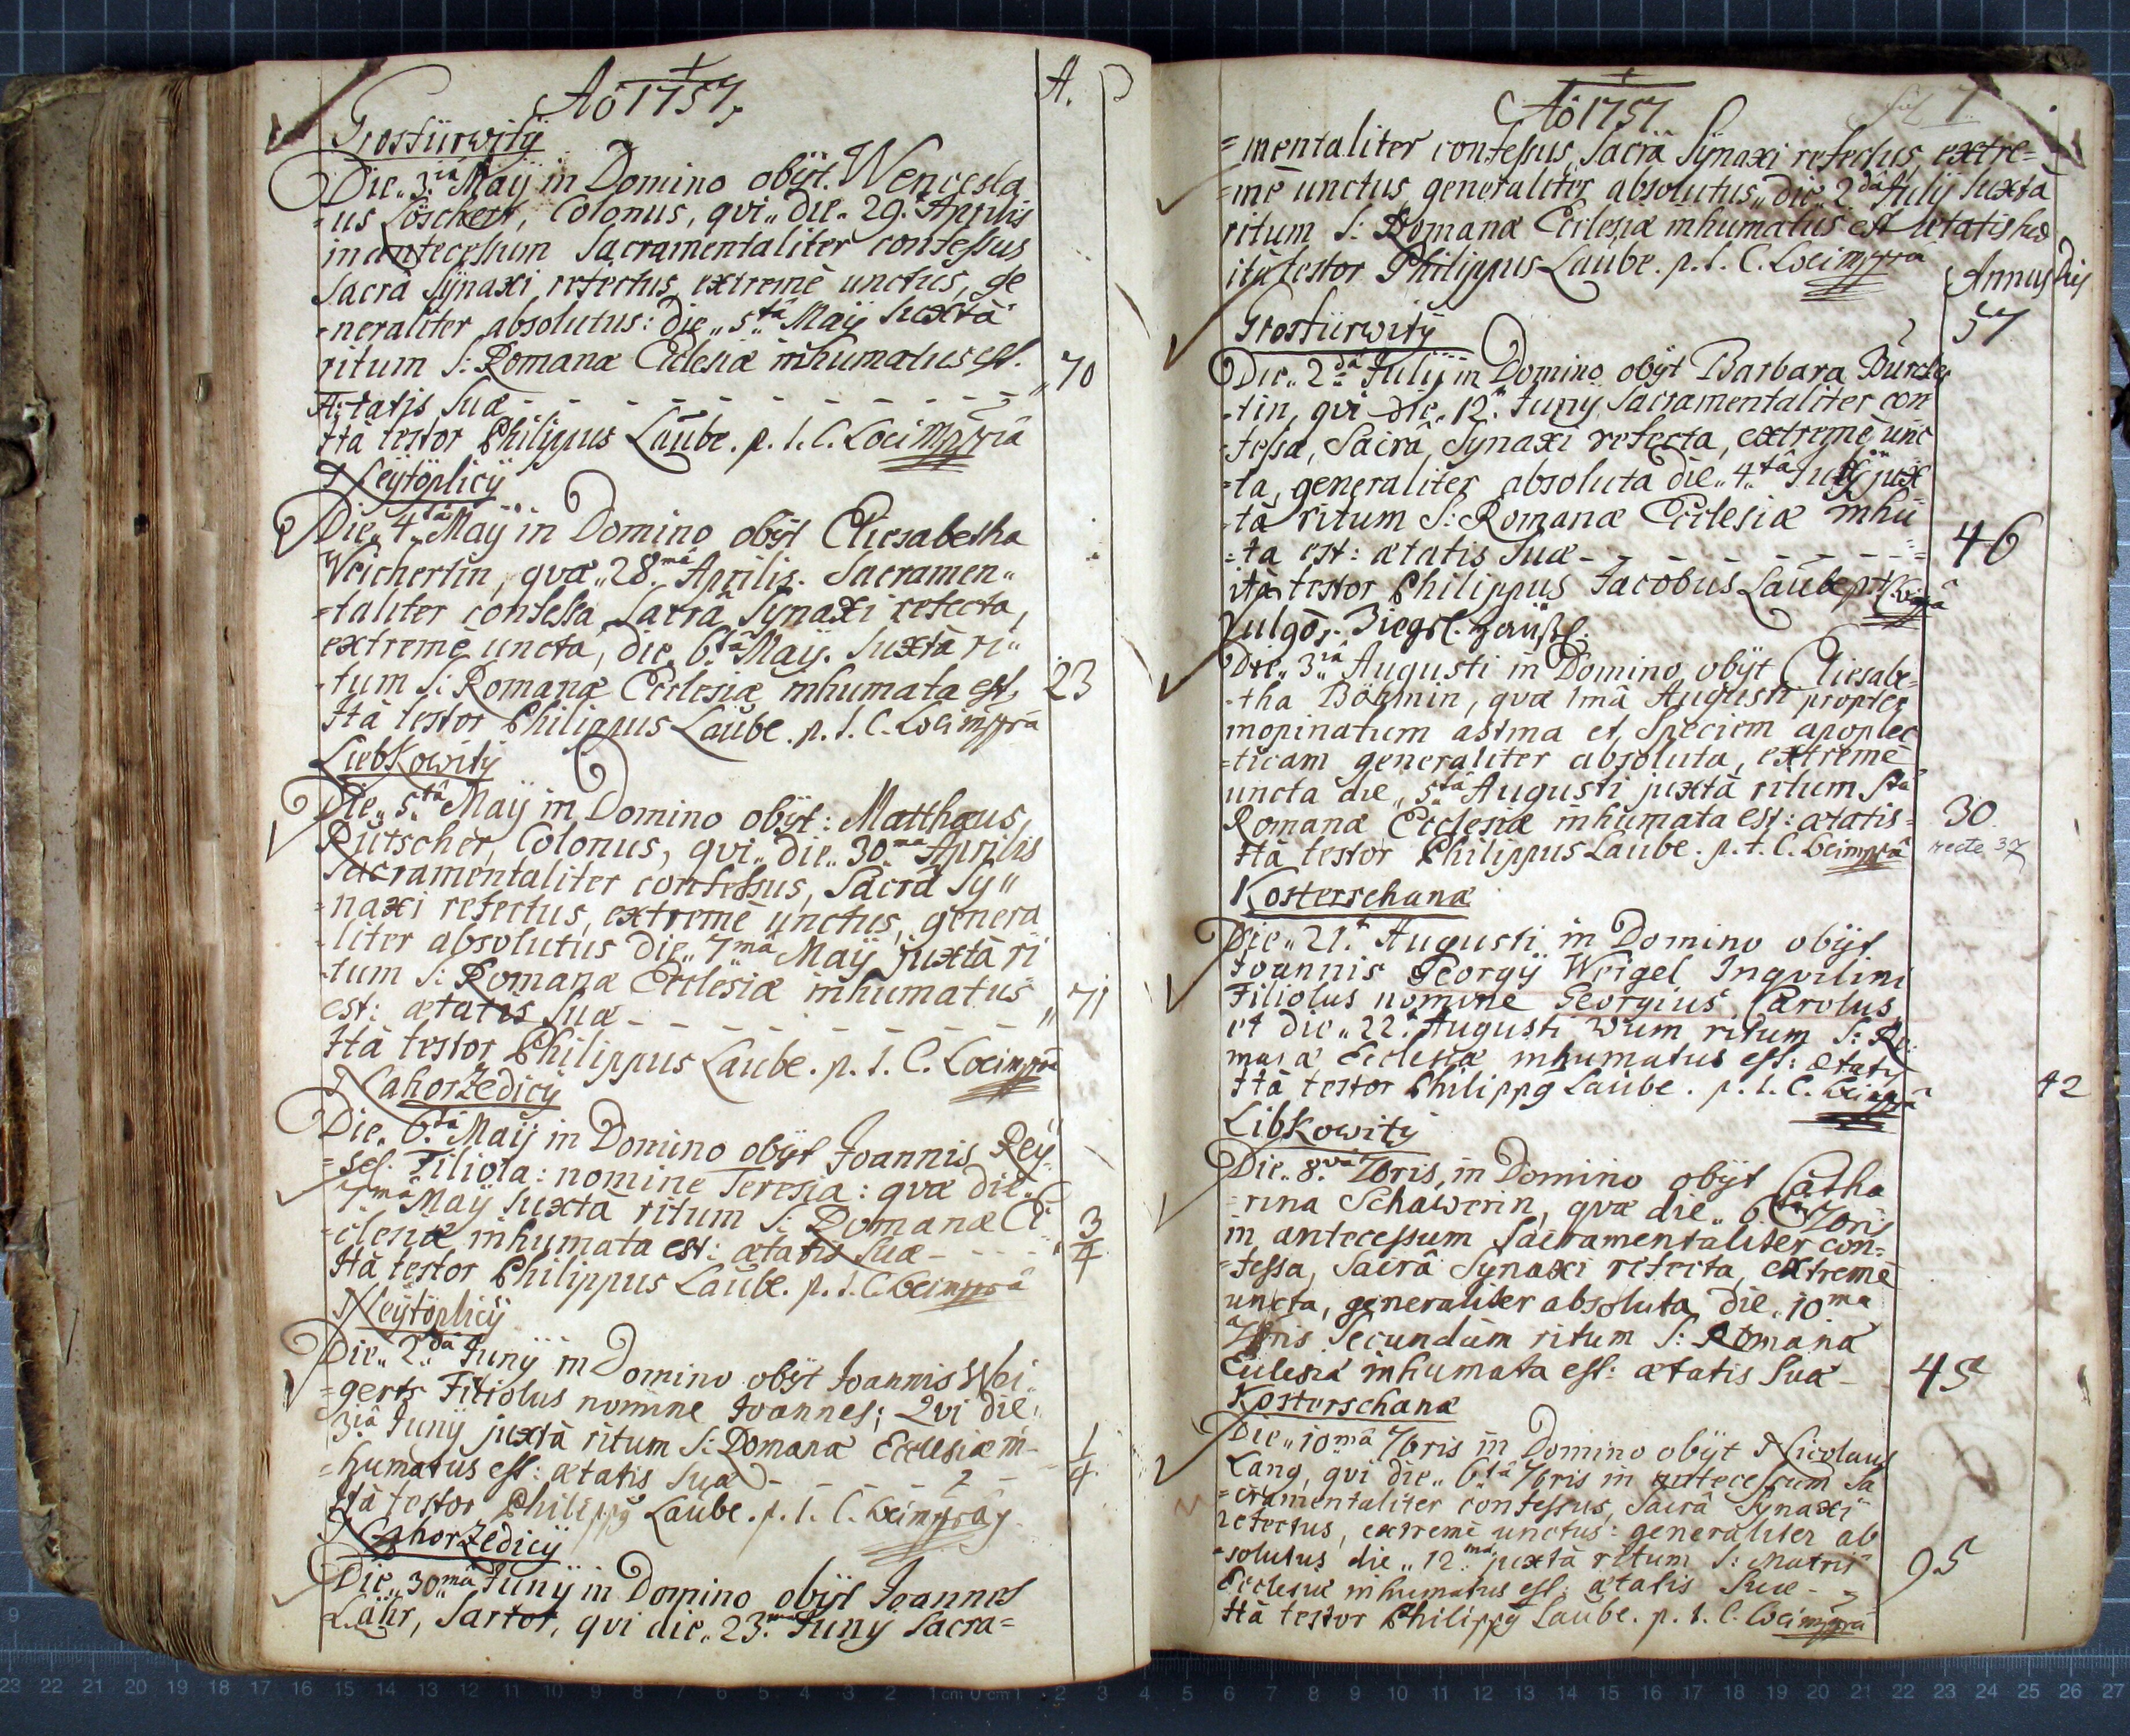 Aô 1757.
A.
Grostürwitÿ
Die„ 3.iâ Maÿ in Domino obÿt. Wencesla
-us Löschert, Colonus, qvi„ die„ 29.â Aprilis
in antecessum Sacramentaliter confessus
Sacrâ Sÿnaxi refectus, extremè unctus, ge
-neraliter absolutus: Die„ 5.tâ Maÿ Juxtà
ritum S: Romanæ Ecclesiæ inhumatus est.
Ætatis Suæ - - - - - - - - - „ 70
Ità testor Philippus Laube. p. t. C. Loci mppria
Neÿtöplicÿ
Die„ 4.tâ Maÿ in Domino obÿt Eliesabetha
Weichertin, qvæ„ 28.mâ Aprilis. Sacramen„
-taliter confessa Sacrâ Sÿnaxi refecta,
extremè uncta, die 6.tâ Maÿ. Juxtà ri„
-tum S: Romanæ Ecclesiæ inhumata est, 23
Ità testor Philippus Laube. p. t. C. Loci mppria
Liebkowitÿ
Die„ 5.tâ Maÿ in Domino obÿt: Matthæus
Rütscher, Colonus, qvi„ die„ 30.mâ Aprilis
Sacramentaliter confessus, Sacrâ Sÿ„
-naxi refectus, extremè unctus, genera
-liter absolutus die„ 7.mâ Maÿ juxtà ri
-tum S: Romanæ Ecclesiæ inhumatus
est: ætatis Suæ - - - - - - - „ 71
Ità testor Philippus Laube. p. t. C. Loci mppria
Nahorzedicÿ
Die„ 6.tâ Maÿ in Domino obÿt Joannis Reÿ-
=sel. Filiola: nomine Teresia: qvæ die„
7.mâ Maÿ Juxtà ritum S: Romanæ Ec
-clesiæ inhumata est: ætatis Suæ - - - - 3/4
Ità testor Philippus Laube. p. t. C. Loci mppriâ
Neÿtöplicÿ
Die„ 2.dâ Junÿ in Domino obÿt Joannis Wei„
=gerts Filiolus nomine Joannes; Qvi die„
3iâ Junÿ juxtà ritum S: Romanæ Ecclesiæ in-
=humatus est: ætatis Suæ - - - - 1/4
Ità testor Philippg Laube. p. t. C. Loci mppriâ
Nahorzedicÿ
Die„ 30.mâ Junÿ in Domino obÿt Joannes
Lähr, Sartor, qvi die„ 23.mâ Junÿ Sacra=
Aô 1757
7
=mentaliter confessus, Sacrâ Sÿnaxi refectus, extre=
=mè unctus, generaliter absolutus„ die„ 2.dâ Julÿ Juxtà
ritum S: Romanæ Ecclesiæ inhumatus est ætatis suæ
ità testor Philippus Laube. p. t. C. Loci mppria
Annus Dies
57
Grostürwitÿ
Die„ 2.dâ Julÿ in Domino obÿt Barbara
-tin, qvi die„ 12.â Junÿ Sacramentaliter con
-fessa, Sacrâ Sÿnaxi refecta, extremè unc
-ta, generaliter absoluta die„ 4.tâ Julÿ jux
-tà ritum S: Romanæ Ecclesiæ inhu
=ta est: ætatis Suæ - - - - - - - 46
ità testor Philippus Jacobus Laube
Vulgò: Ziegl.
Die„ 3.iâ Augusti in Domino obÿt Eliesabe-
-tha Böhmin, qvæ 1mâ Augusti propter
inopinatum astma et Speciem apoplec
=ticam generaliter absoluta, extremè
uncta die„ 5.tâ Augusti juxtà ritum S.tæ
Romanæ Ecclesiæ inhumata est: ætatis= 30
recte 37
Ità testor Philippus Laube. p. t. C. Loci mppriâ
Kosterschanæ
Die„ 21.â Augusti in Domino obÿt
Joannis Georgÿ Weigel Inqvilini
Filiolus nomine Georgius Carolus,
et die„ 22.â Augusti 2dum ritum S: Ro:
manæ Ecclesiæ inhumatus est: Ætatis
Ità testor Philippg Laube. p. t. C. Loci mppria 42
Libkowitÿ
Die„ 8.vâ 7bris, in Domino obÿt Catha
-rina Schawerin, qvæ die„ 6tâ 7bris
in antecessum Sacramentaliter con=
-fessa, Sacrâ Sÿnaxi refecta, extremè
uncta, generaliter absoluta die„ 10mâ
7bris Secundùm ritum S: Romanæ
Ecclesiæ inhumata est: ætatis Suæ - 45
Kosterschanæ
Die„ 10mâ 7bris in Domino obÿt Nicolaus
Lang, qvi die„ 6.tâ 7bris in antecessum Sa
-cramentaliter confessus, Sacrâ Sÿnaxi
refectus, extremè unctus: generaliter ab
-solutus die„ 12.mâ juxtà ritum S: Matris
Ecclesiæ inhumatus est: ætatis Suæ - 95
Ità testor Philippg Laube. p. t. C. Loci mppriâ